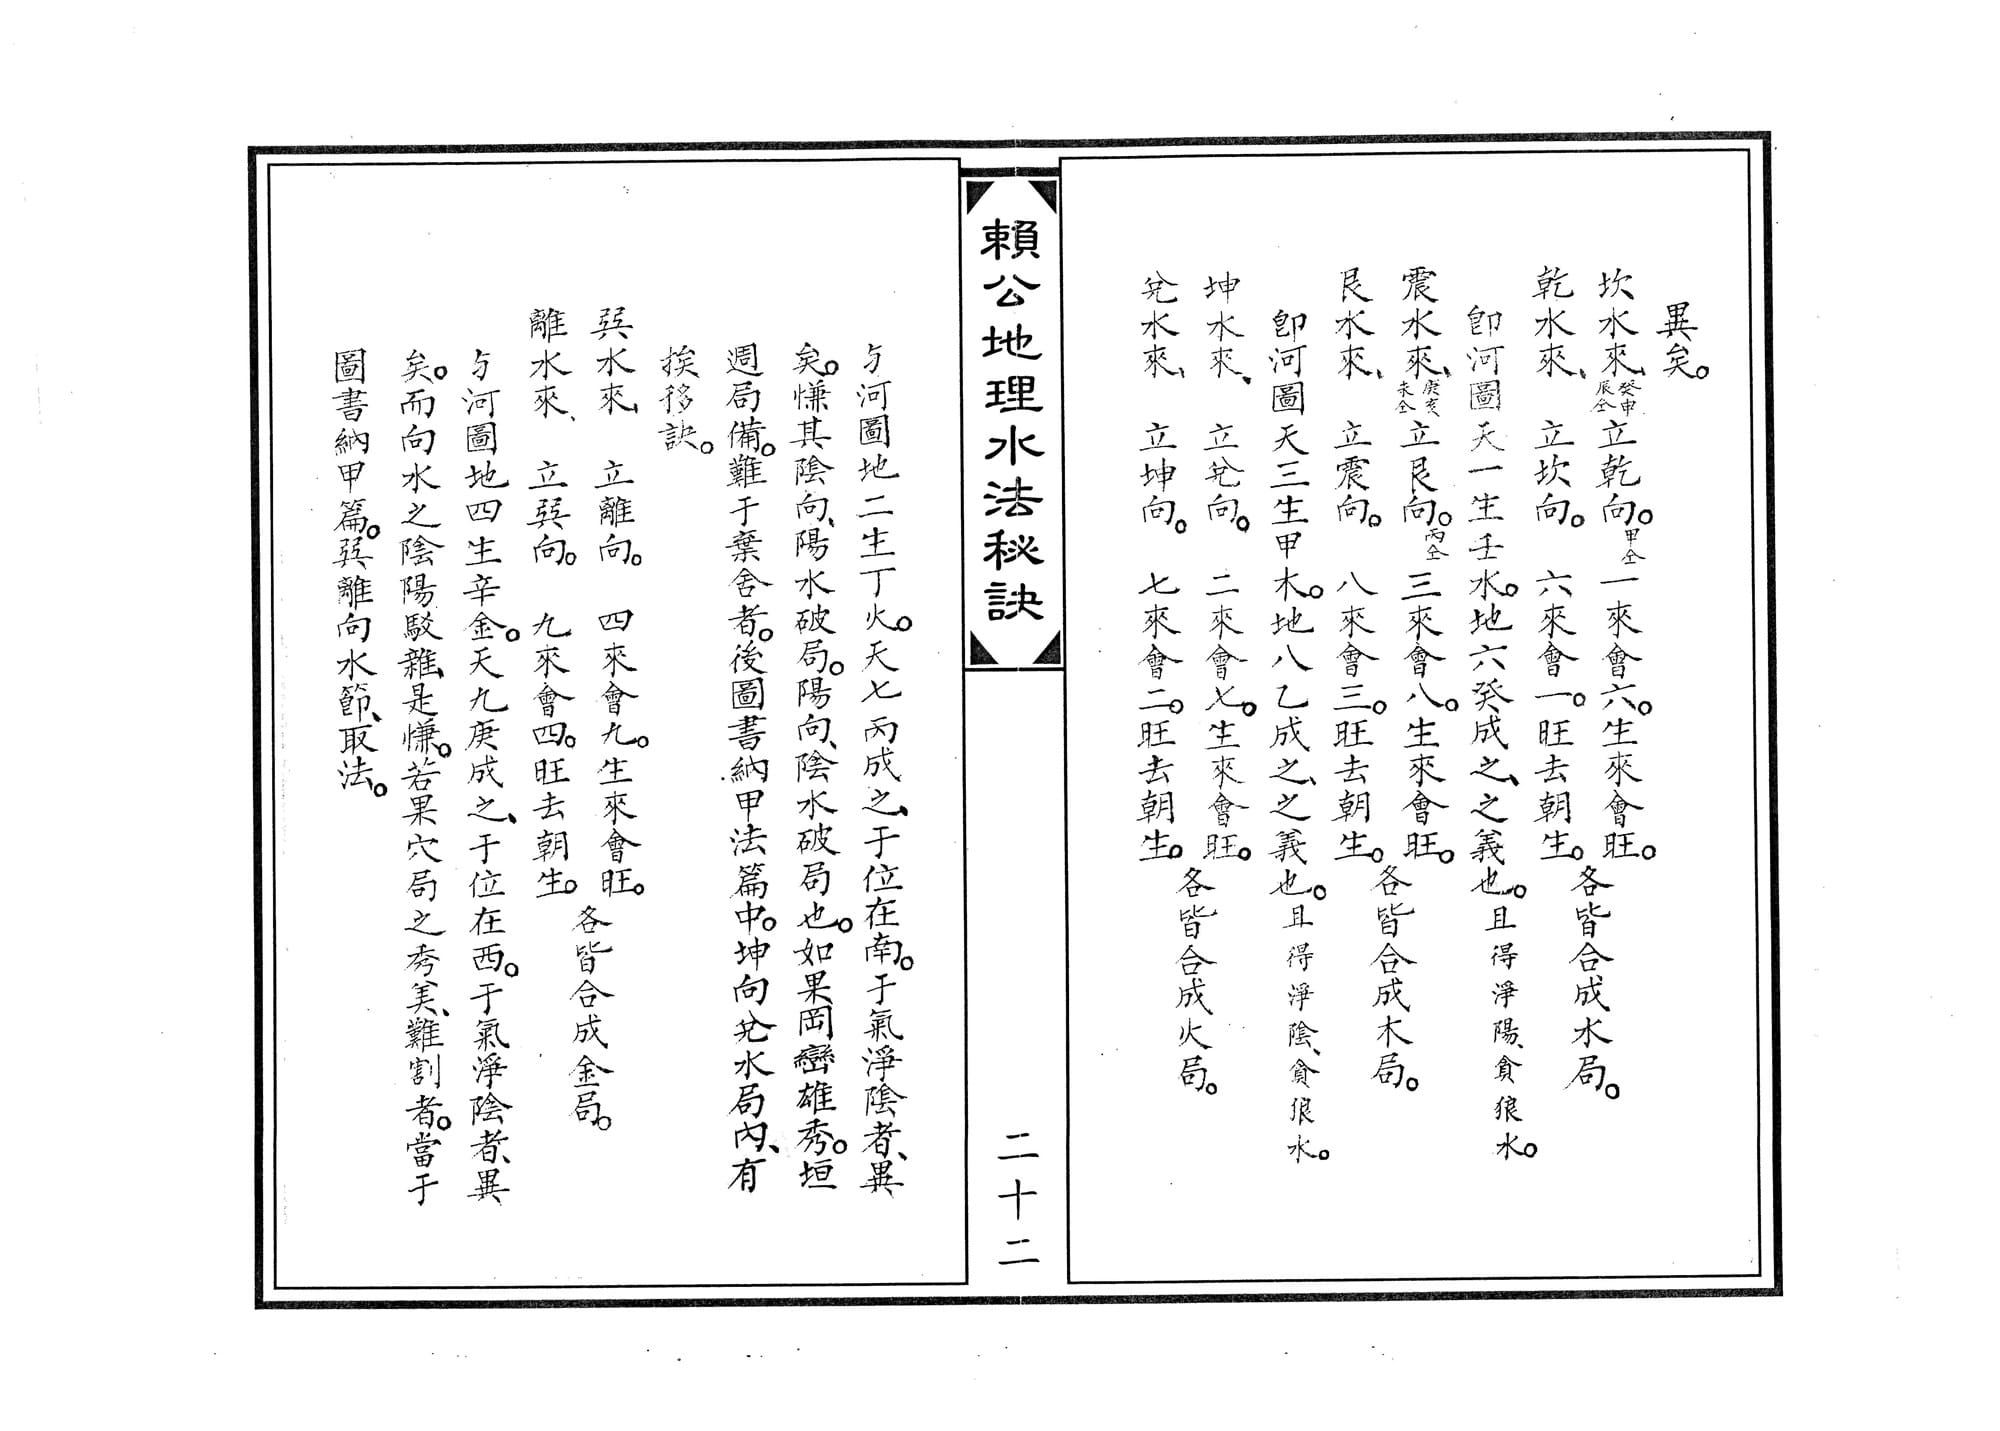 異矣。
坎水來、癸申辰仝立乾向。甲仝一來會六。生來會旺。
乾水來、立坎向。六來會一。旺去朝生。
各皆合成水局。
即河圖天一生壬水。地六癸成之、之義也。且得淨陽、貪狼水。
震水來、庚亥未仝立艮向。丙仝三來會八。生來會旺。
艮水來、立震向。八來會三。旺去朝生。
各皆合成木局。
即河圖天三生甲木。地八乙成之、之義也。且得淨陰、貪狼水。
坤水來、立兌向。二來會七。生來會旺。
兌水來、立坤向。七來會二。旺去朝生。
各皆合成火局。
賴公地理水法秘訣
二十二
与河圖地二生丁火。天七丙成之、于位在南。于氣淨陰者、異
矣。慊其陰向、陽水破局。陽向、陰水破局也。如果岡巒雄秀。垣
週局備。難于棄舍者。後圖書納甲法篇中。坤向兌水局內、有
挨移訣。
巽水來、立離向。四來會九。生來會旺。
離水來、立巽向。九來會四。旺去朝生。
各皆合成金局。
与河圖地四生辛金。天九庚成之、于位在西。于氣淨陰者、異
矣。而向水之陰陽駁雜、是慊。若果穴局之秀美、難割者。當于
圖書納甲篇。巽離向水節、取法。